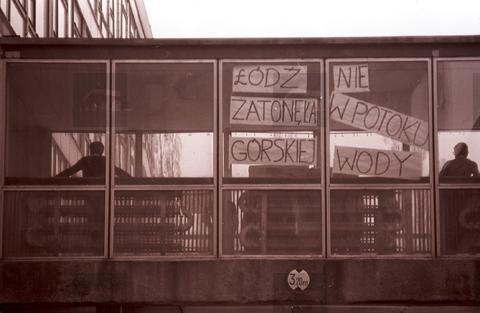 ŁÓDŹ
ZATONĘŁA
GÓRSKIEJ
NIE
W POTOKU
WODY
3,20m